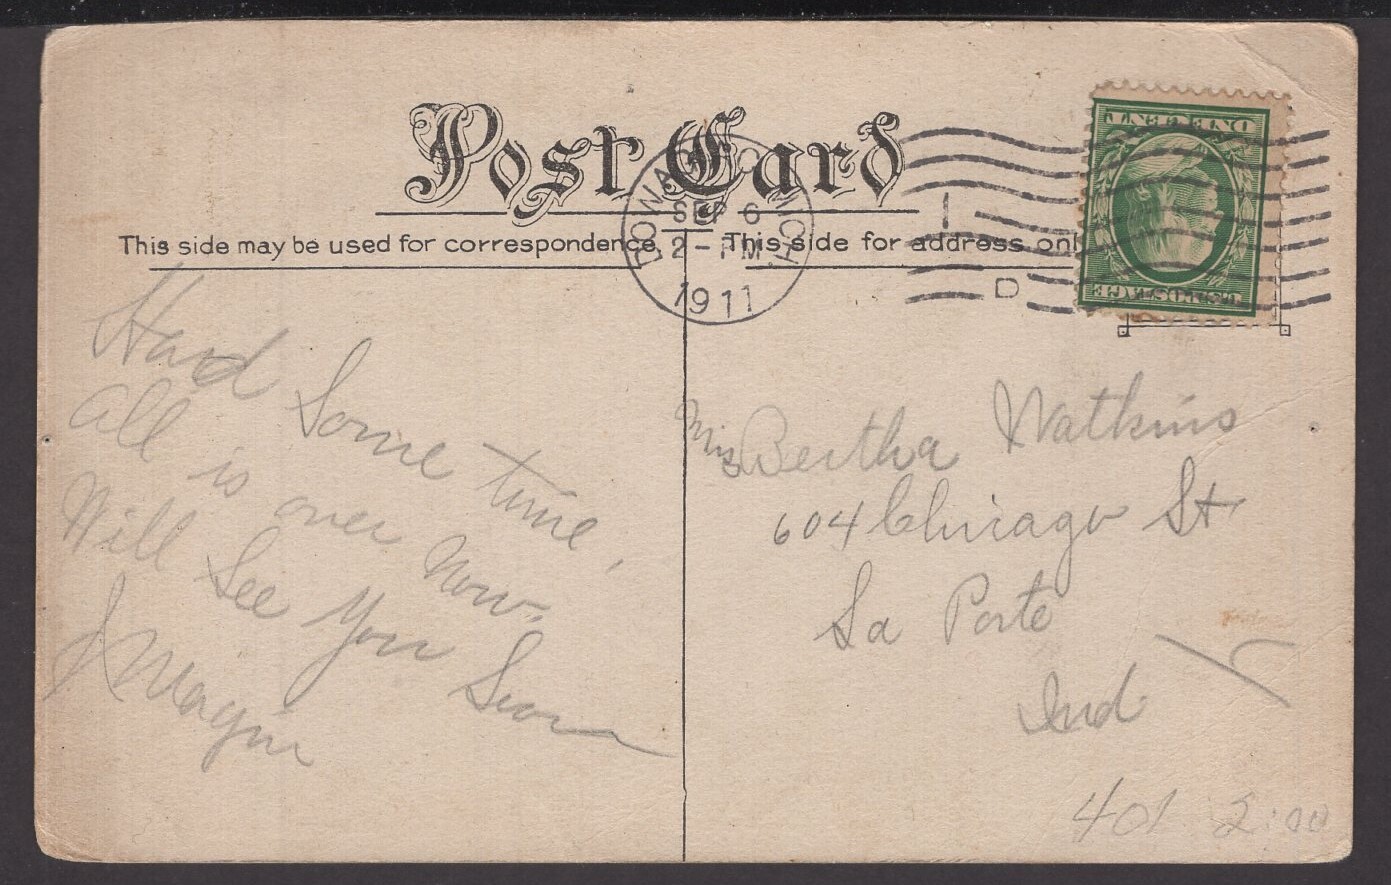 Post Card
This side may be used for correspondence.
This side for address onl
DOWAGIAC MICH
SEP 6
2 - PM
1911
1
D
ONE CENT
U.S. POSTAGE
Had Some time,
all is over now.
Will See You Soon
Mrs Bertha Watkins
604 Chicago St
La Porte
Ind
401 2:00